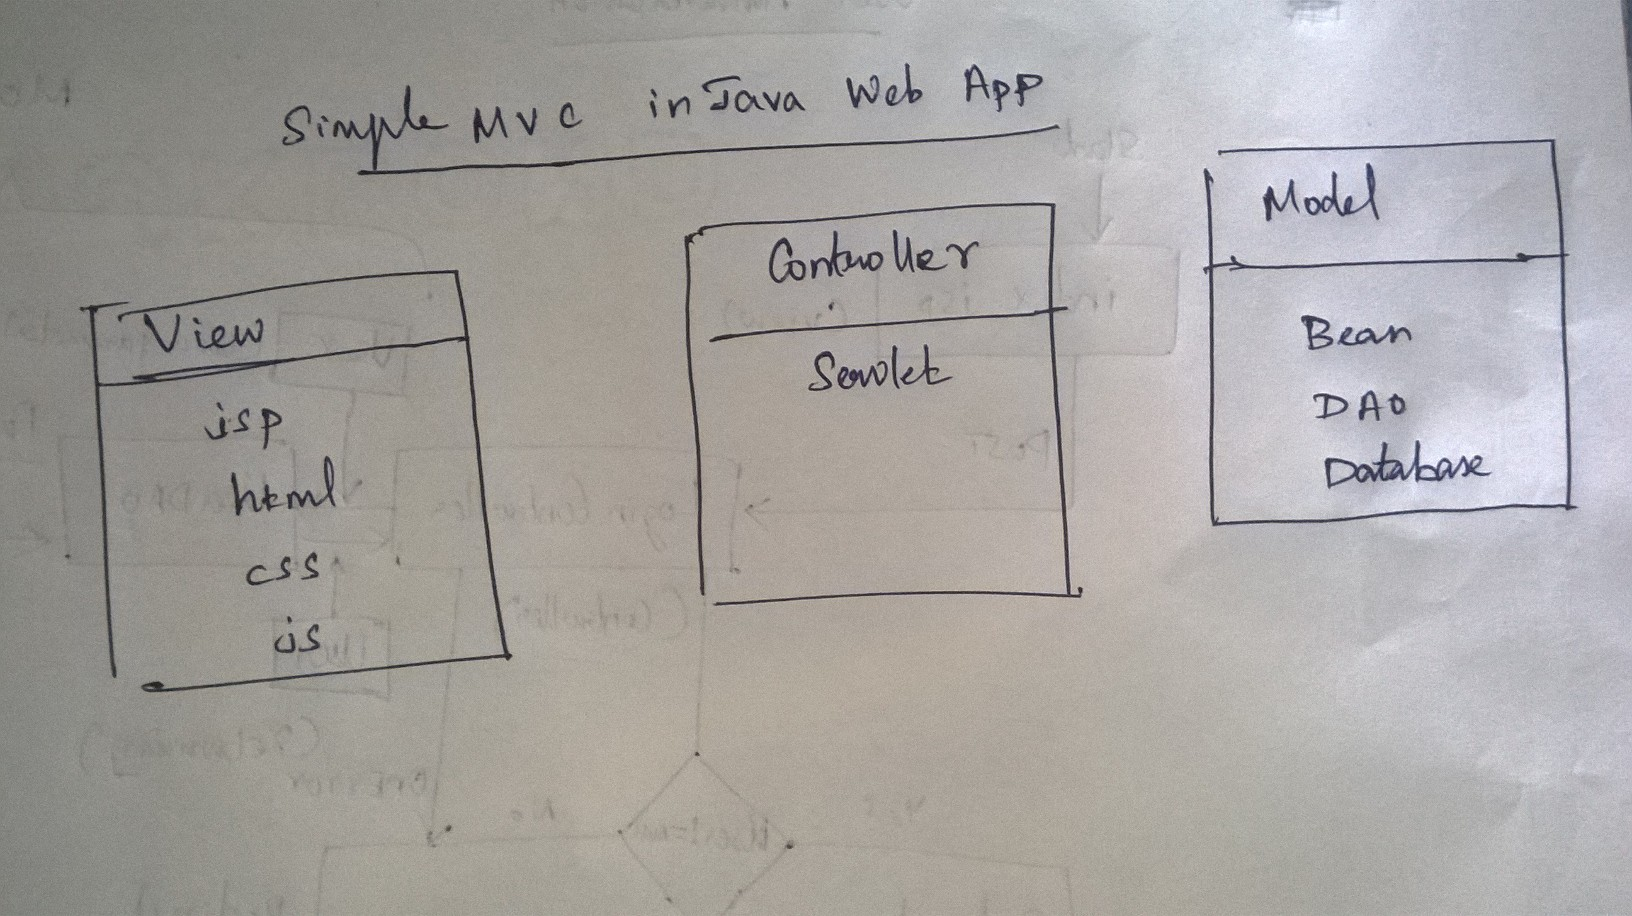 Simple MVC in Java Web App
View
jsp
html
css
js
Controller
Servlet
Model
Bean
DAO
Database